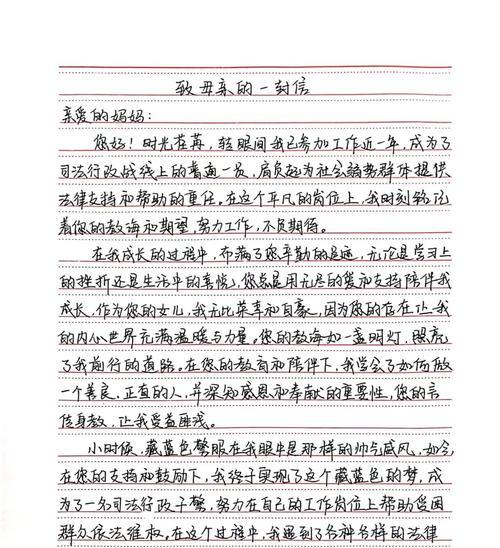 致母亲的一封信
亲爱的妈妈：
您好！时光荏苒，转眼间我已参加工作近一年，成为了
司法行政战线上的普通一员，肩负起为社会弱势群体提供
法律支持和帮助的重任。在这个平凡的岗位上，我时刻铭记
着您的教诲和期望，努力工作，不负期待。
在我成长的过程中，布满了您辛勤的足迹，无论是学习上
的挫折还是生活中的喜悦，您总是用无尽的爱和支持陪伴我
成长，作为您的女儿，我无比荣幸和自豪，因为您的存在让我
的内心世界充满温暖与力量。您的教诲如一盏明灯，照亮
了我前行的道路。在您的教育和陪伴下，我学会了如何做
一个善良、正直的人，并深知感恩和奉献的重要性，您的言
传身教，让我受益匪浅。
小时候，藏蓝色警服在我眼中是那样的帅气威风，如今，
在您的支持和鼓励下，我终于实现了这个藏蓝色的梦，成
为了一名司法行政干警，努力在自己的工作岗位上帮助受困
群众依法维权。在这个过程中，我遇到了各种各样的法律